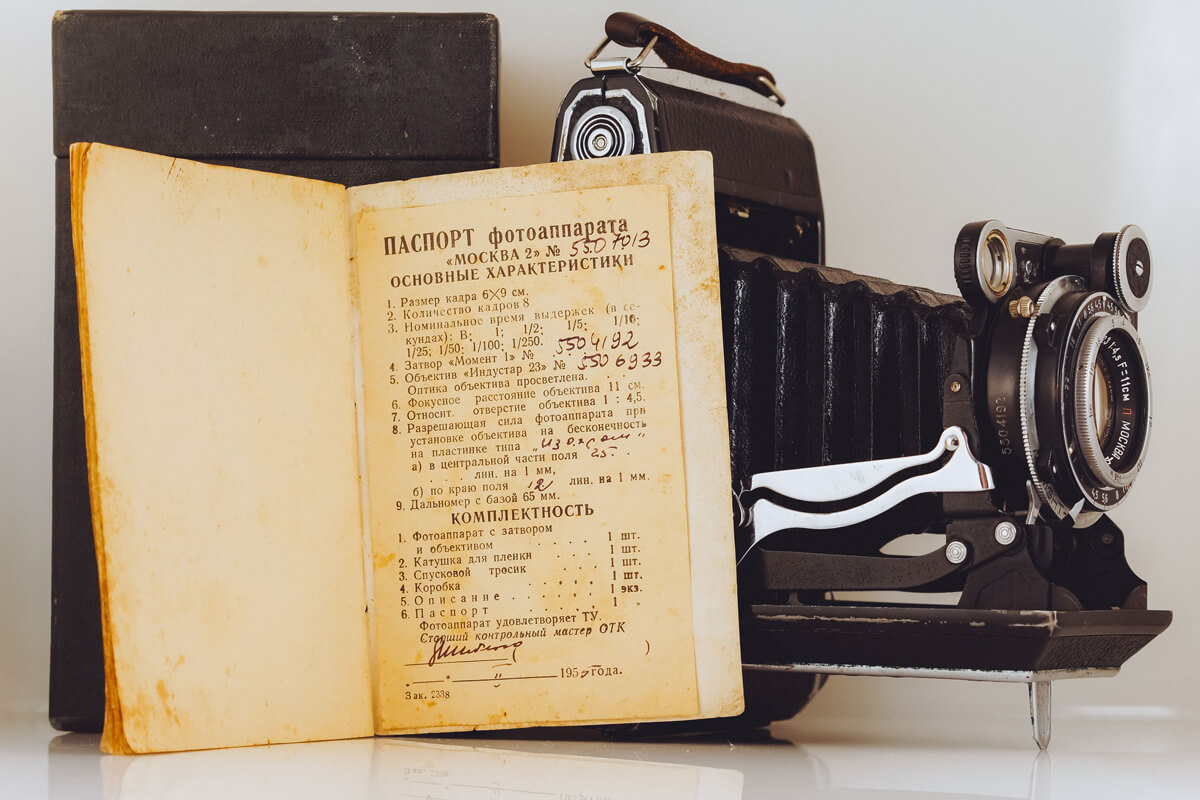 ПАСПОРТ фотоаппарата
«МОСКВА 2» № 5507013
ОСНОВНЫЕ ХАРАКТЕРИСТИКИ
1. Размер кадра 6×9 см.
2. Количество кадров 8
3. Номинальное время выдержек (в се-
кундах): В; 1; 1/2; 1/5; 1/10;
1/25; 1/50; 1/100; 1/250.
4. Затвор «Момент 1» № 5504192
5. Объектив «Индустар 23» № 5506933
Оптика объектива просветлена.
6. Фокусное расстояние объектива 11 см.
7. Относит. отверстие объектива 1 : 4,5.
8. Разрешающая сила фотоаппарата при
установке объектива на бесконечность
на пластинке типа „изохром“
а) в центральной части поля 25.
. . . . . лин. на 1 мм,
б) по краю поля 12 лин. на 1 мм.
9. Дальномер с базой 65 мм.
КОМПЛЕКТНОСТЬ
1. Фотоаппарат с затвором
и объективом . . . . 1 шт.
2. Катушка для пленки . . . . 1 шт.
3. Спусковой тросик . . . 1 шт.
4. Коробка . . . . . 1 шт.
5. Описание . . . . . . 1 экз.
6. Паспорт . . . . . 1 "
Фотоаппарат удовлетворяет ТУ.
Старший контрольный мастер ОТК
" II 195 года.
Зак. 2338
5504192
1:4,5 F=11см П МОСКВА